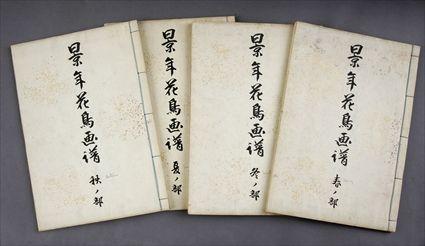 景年花鳥画譜
春ノ部
景年花鳥画譜
冬ノ部
景年花鳥画譜
夏ノ部
景年花鳥画譜
秋ノ部